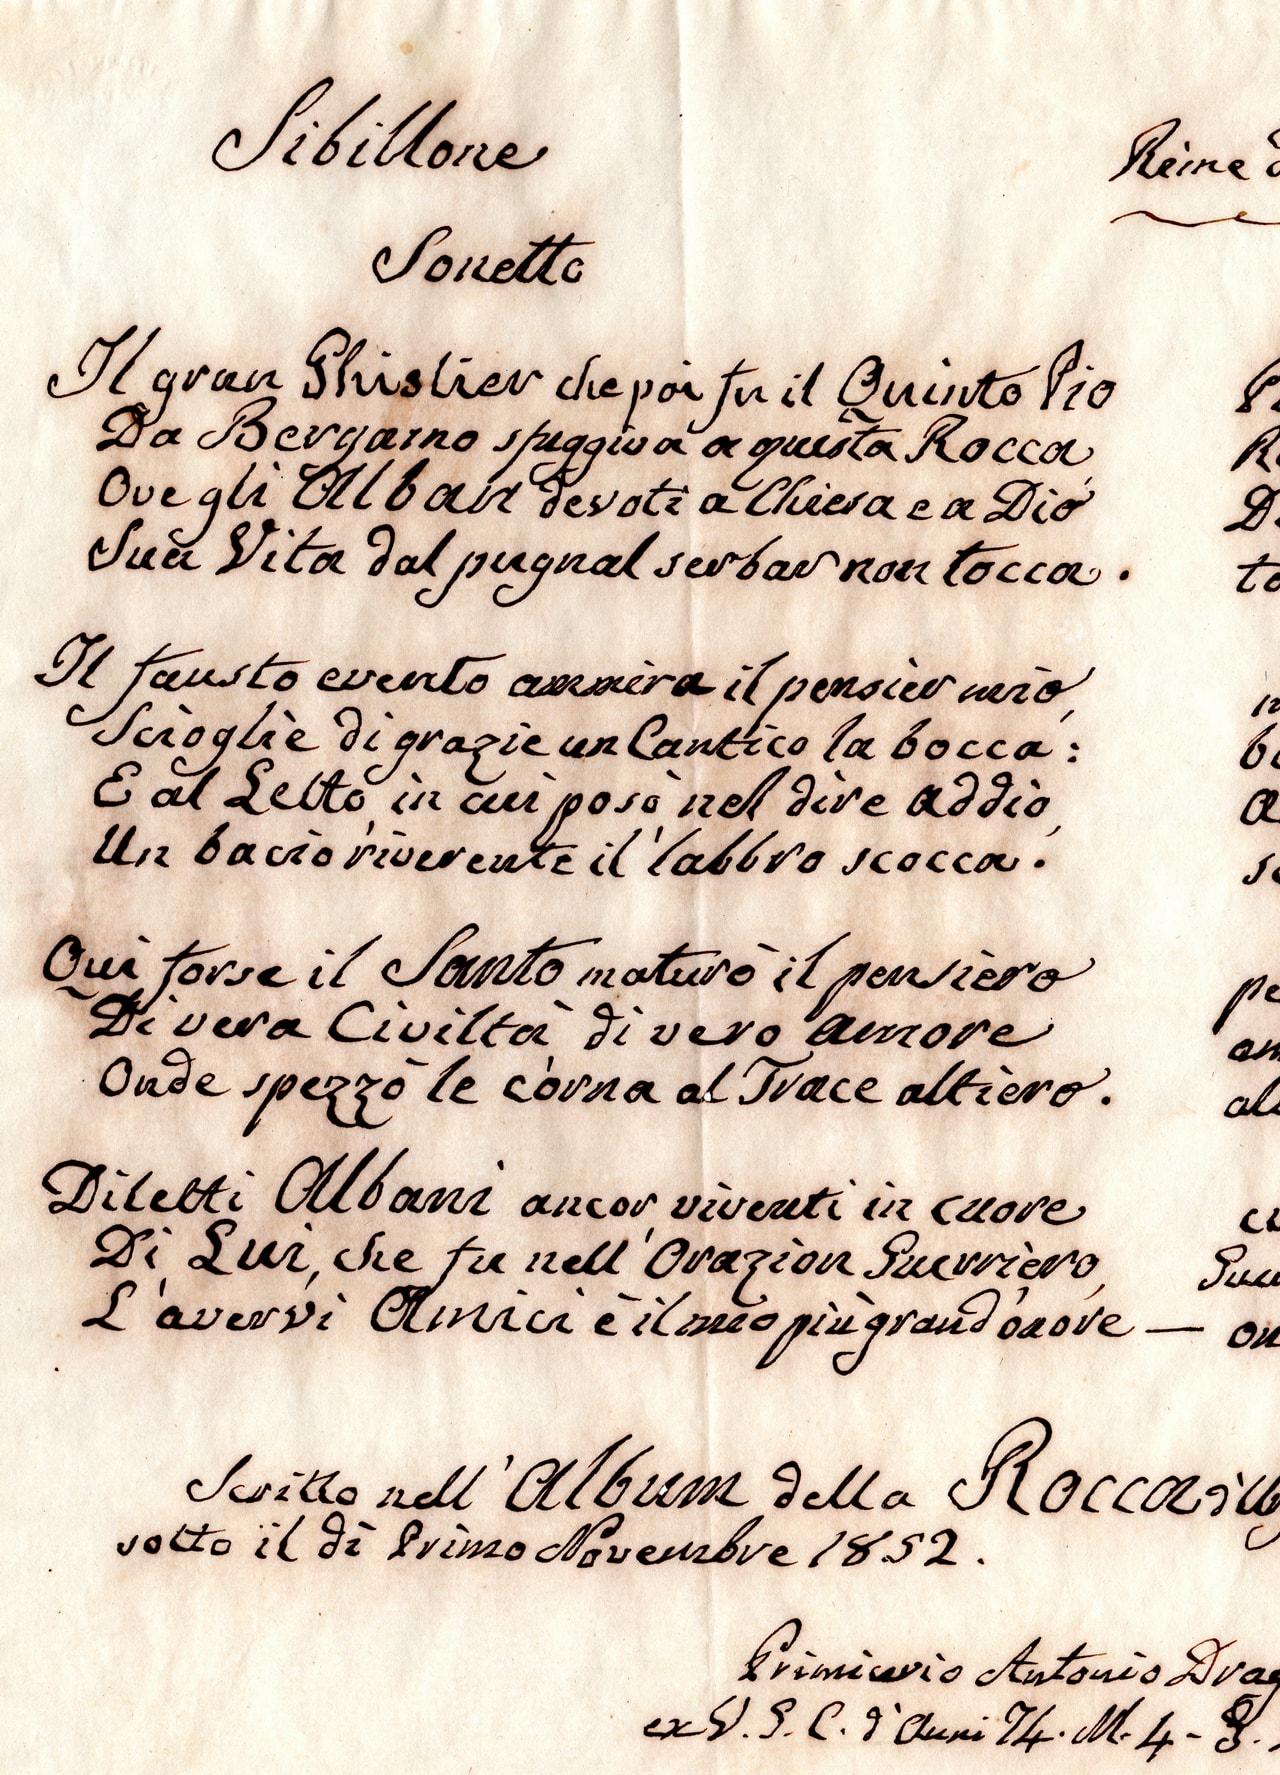 Sibillone
Rime
Sonetto
Il gran Ghislier che poi fu il Quinto Pio
Da Bergamo sfuggiva a questa Rocca,
Ove gli Alban devoti a Chiesa e a Dio
Sua Vita dal pugnal serbar non tocca.
Il fausto evento ammira il pensier mio,
Scioglie di grazie un Cantico la bocca:
E al Letto, in cui posò nel dire addio,
Un bacio riverente il labbro scocca.
Qui forse il Santo maturò il pensiero
Di vera Civiltà di vero amore
Onde spezzò le corna al Trace altiero.
Diletti Albani ancor viventi in cuore
Di Lui, che fu nell'Orazion Guerriero,
L'avervi Amici è il mio più grand'onore —
Scritto nell'Album della Rocca
sotto il dì Primo Novembre 1852.
Primicerio Antonio Drag
ex V. G. C. d'Anni 74. M. 4 -